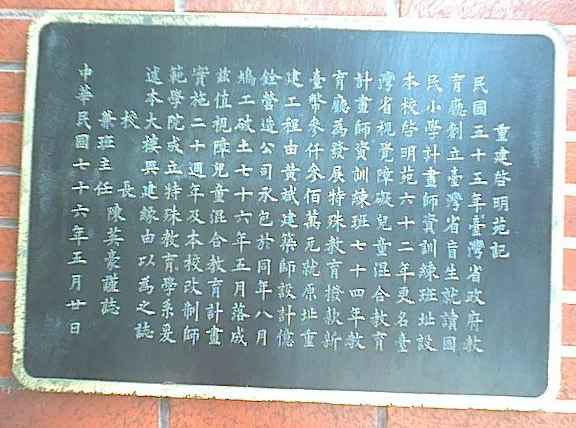 重建啓明苑記
民國五十五年臺灣省政府教
育廳創立臺灣省盲生就讀國
民小學計畫師資訓練班址設
本校啓明苑六十二年更名臺
灣省視覺障礙兒童混合教育
計畫師資訓練班七十四年教
育廳為發展特殊教育撥款新
臺幣參仟參佰萬元就原址重
建工程由黄斌建築師設計億
銓營造公司承包於同年八月
鳩工破土七十六年五月落成
兹值視障兒童混合教育計畫
實施二十週年及本校改制師
範學院成立特殊教育學系爰
述本大樓興建緣由以為之誌
校長
兼班主任 陳英豪謹誌
中華民國七十六年五月廿日